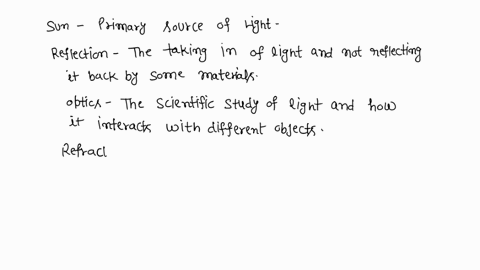 Sun - Primary source of Light.
Reflection - The taking in of light and not reflecting
it back by some materials.
optics - The scientific study of light and how
it interacts with different objects.
Refracl